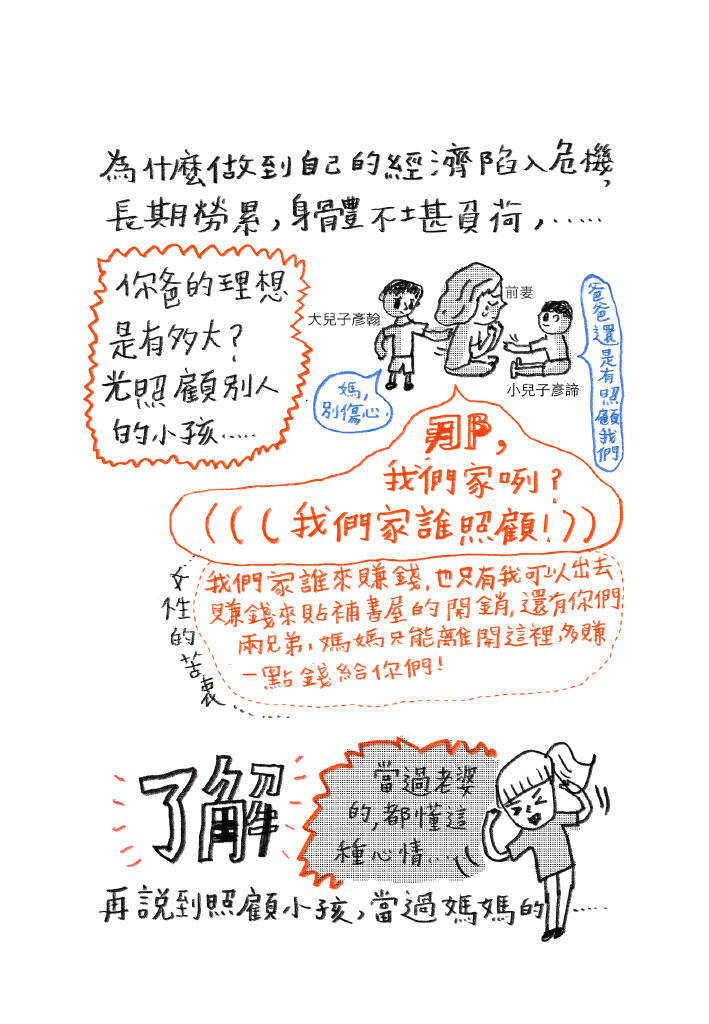 為什麼做到自己的經濟陷入危機,
長期勞累,身體不土甚負荷,.....
你爸的理想
是有多大?
光照顧別人
的小孩.....
大兒子彥翰
前妻
小兒子彥諦
媽,
別傷心.
爸爸還是有照顧我們
那,
我們家咧?
(((我們家誰照顧!))
我們家誰來賺錢,也只有我可以出去
賺錢來貼補書屋的開銷,還有你們
兩兄弟,媽媽只能離開這裡,多賺
一點錢給你們!
女性的苦衷......
了解
當過老婆
的,都懂這
種心情....
再說到照顧小孩,當過媽媽的......